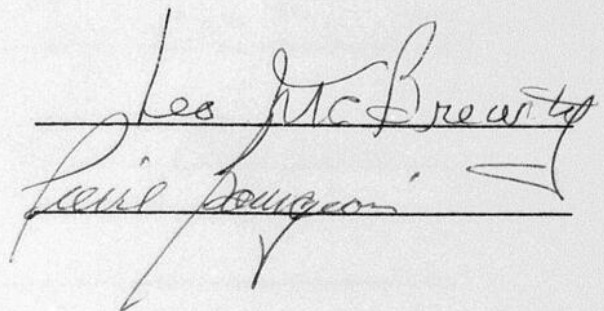 Leo McBrearty
Pierre Bourgeois